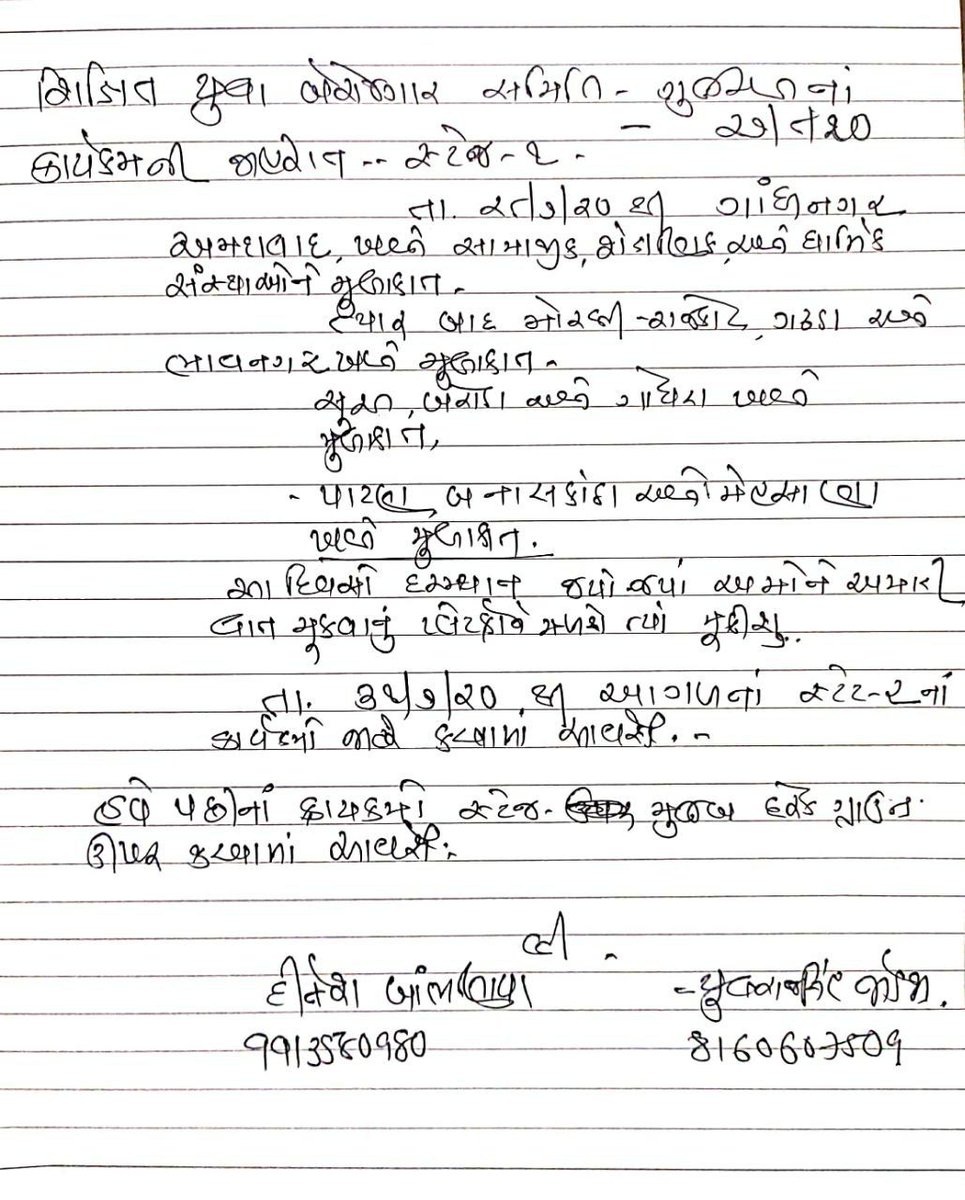 શિક્ષિત યુવા બેરોજગાર સમિતિ - ગુજરાતનાં
કાર્યક્રમની જાહેરાત -- સ્ટેજ-૧ -
તા. ૨૮/૭/૨૦ થી ગાંધીનગર
અમદાવાદ, ખાતે સામાજીક, શૈક્ષણિક, અને ધાર્મિક
સંસ્થાઓને મુલાકાત -
ત્યાર બાદ મોરબી - રાજકોટ, ગઢડા અને
ભાવનગર ખાતે મુલાકાત -
સુરત, અને ખાતે
મુલાકાત,
- પાટણ, બનાસકાંઠા અને મહેસાણા
ખાતે મુલાકાત.
આ દિવસો દરમ્યાન જ્યાં જ્યાં અમોને અમારી
વાત મુકવાનું મળશે ત્યાં મૂકીશું..
તા. /૭/૨૦ થી આગળનાં સ્ટેટ-૨નાં
જાહેર કરવામાં આવશે. -
હવે પછીનાં કાર્યક્રમો સ્ટેજ- મુજબ દરેક
ઉપર કરવામાં આવશે.
લી.
દીનેશ બાંભણીયા - યુવરાજસિંહ જાડેજા.
9913580980 8160607509